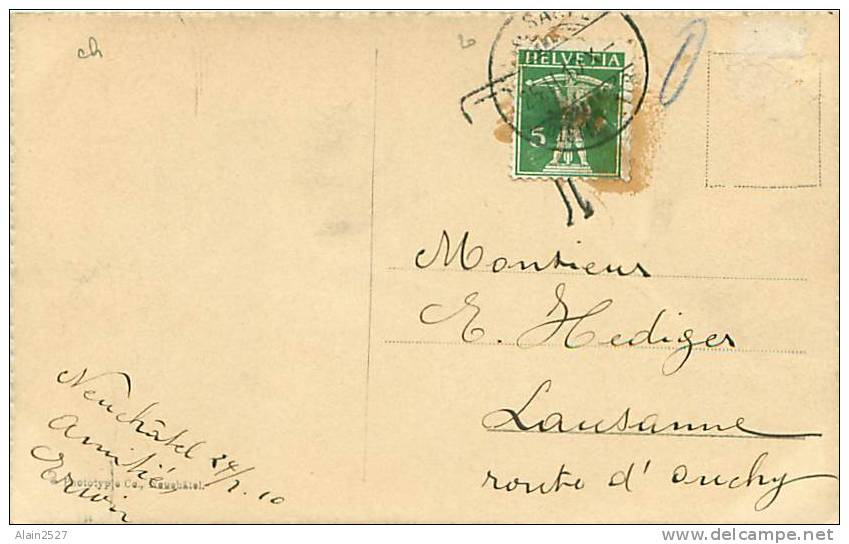 ch
HELVETIA
5
Monsieur
E. Hediger
Lausanne
route d'ouchy
Neuchâtel 24/2.10
Amitiés
Erwin
Phototypie Co., Neuchâtel.
Alain2527
delcampe.net